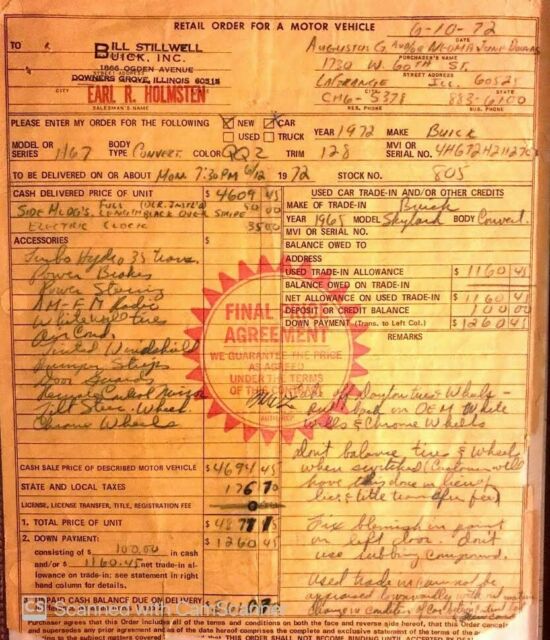 RETAIL ORDER FOR A MOTOR VEHICLE
6-10-72
DATE
TO
BILL STILLWELL
BUICK, INC.
1866 OGDEN AVENUE
STREET ADDRESS
DOWNERS GROVE, ILLINOIS 60515
CITY
EARL R. HOLMSTEN
SALESMAN'S NAME
Augustus G. and/or Neoma June
PURCHASER'S NAME
1730 W. 60TH ST.
STREET ADDRESS
LaGrange Ill. 60525
CITY STATE
RES. PHONE
883-6100
BUS. PHONE
PLEASE ENTER MY ORDER FOR THE FOLLOWING
NEW CAR
USED TRUCK
YEAR 1972 MAKE Buick
MODEL OR SERIES 1167 BODY TYPE Convert. COLOR QQ2 TRIM 128 MVI OR SERIAL NO.
TO BE DELIVERED ON OR ABOUT Mon. 7:30 PM 6/12 1972 STOCK NO. 805
CASH DELIVERED PRICE OF UNIT $ 4609 45
Side Mldg's Full Length Black over Stripe
Electric Clock 35 00
ACCESSORIES $
Turbo Hydro 35 Trans.
Power Brakes
Power Steering
AM-FM Radio
Whitewall tires
Air Cond.
Tinted Windshield
Bumper Strips
Door Guards
Remote Control Mirror
Tilt Steer. Wheel
Chrome Wheels
USED CAR TRADE-IN AND/OR OTHER CREDITS
MAKE OF TRADE-IN Buick
YEAR 1965 MODEL Skylark BODY Convert.
MVI OR SERIAL NO.
BALANCE OWED TO
ADDRESS
USED TRADE-IN ALLOWANCE $ 1160 45
BALANCE OWED ON TRADE-IN
NET ALLOWANCE ON USED TRADE-IN $ 1160 45
DEPOSIT OR CREDIT BALANCE 100 00
DOWN PAYMENT (Trans. to Left Col.) $ 1260 45
REMARKS
FINAL PRICE
AGREEMENT
WE GUARANTEE THE PRICE
AS AGREED
UNDER THE TERMS
OF THIS
Take off Dayton tires & Wheels -
put back on OEM White
Walls & Chrome Wheels
don't balance tires & wheels
when switched (Customer will
have this done in lieu of
lic. & title transfer fee)
Fix blemish in paint
on left door. don't
use rubbing compound.
Used trade in
CASH SALE PRICE OF DESCRIBED MOTOR VEHICLE $ 4694 45
STATE AND LOCAL TAXES
LICENSE, LICENSE TRANSFER, TITLE, REGISTRATION FEE
1. TOTAL PRICE $
2. DOWN PAYMENT: $ 1260 45
consisting of $ 100.00 in cash
and/or $ 1160.45 net trade-in al-
lowance on trade-in: see statement in right
hand column for details.
CASH BALANCE DUE ON DELIVERY
CS Scanned with CamScanner
Purchaser agrees that this order includes all of the terms and conditions on both the face and reverse side hereof, that this Order
and supersedes any prior agreement and as of the date hereof comprises the complete and exclusive statement of the terms of the
THAT THIS ORDER SHALL NOT BECOME BINDING UNTIL ACCEPTED BY